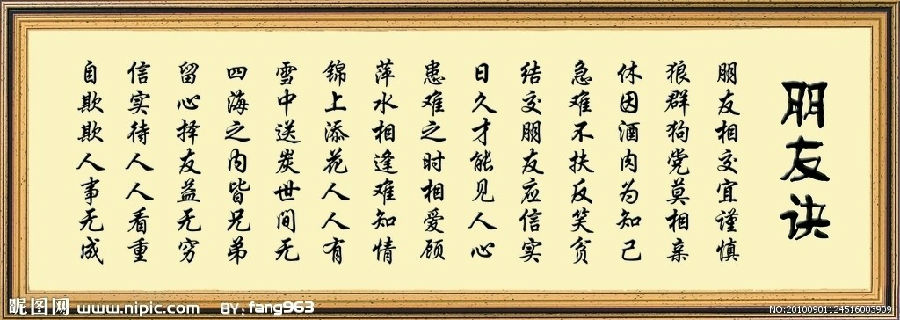 朋友诀
朋友相交宜谨慎
狼群狗党莫相亲
休因酒肉为知己
急难不扶反笑贫
结交朋友应信实
日久才能见人心
患难之时相爱顾
萍水相逢难知情
锦上添花人人有
雪中送炭世间无
四海之内皆兄弟
留心择友益无穷
信实待人人看重
自欺欺人事无成
昵图网 www.nipic.com BY: fang963
NO:20100901124516003909